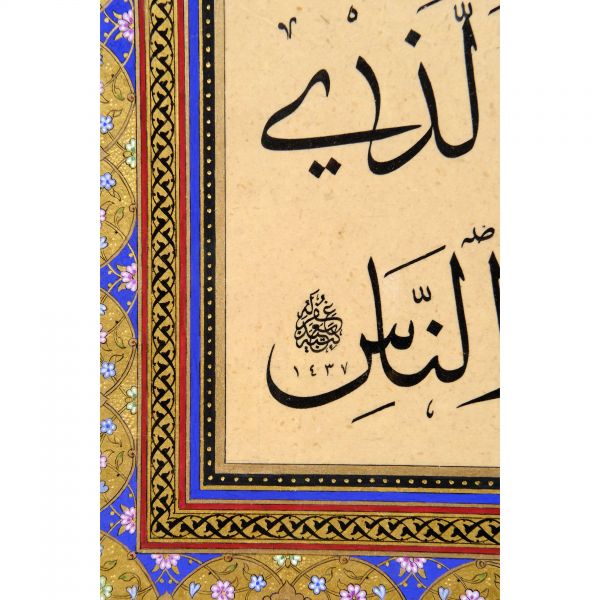 لَّذٖي
ٱلنَّاسِ
١٤٣٧